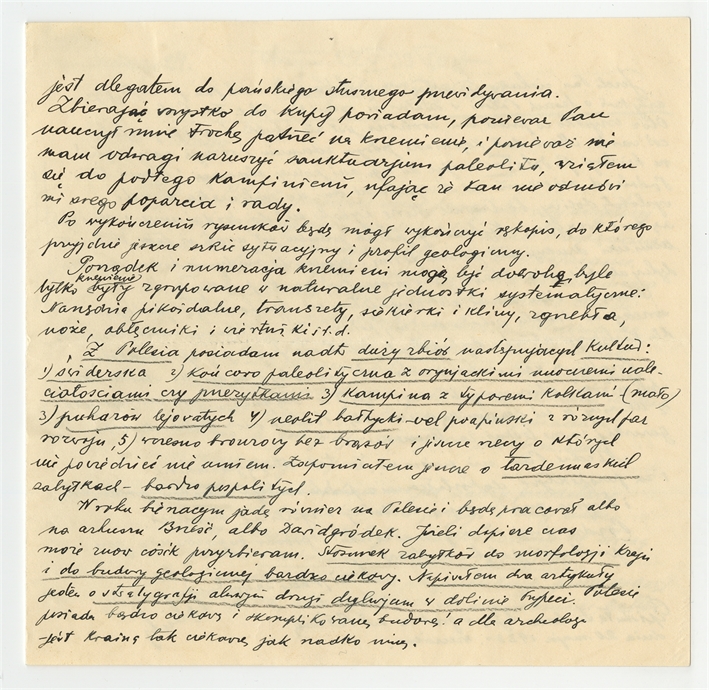 jest dlegatem do pańskiego słusznego przewidywania.
Zbierając wszystko do kupy posiadam, ponieważ Pan
nauczył mnie trochę patrzeć na krzemienie, i ponieważ nie
mam odwagi naruszyć sanktuarjum paleolitu, wziąłem
się do podłego kampinienu, ufając że Pan nie odmówi
mi swego poparcia i rady.
Po wykończeniu rysunków będę mógł wykończyć rękopis, do którego
przyjdzie jeszcze szkic sytuacyjny i profil geologiczny.
Porządek i numeracja krzemieni mogą być dowolne, byle
tylko krzemienie były zgrupowane w naturalne jednostki systematyczne:
Narzędzia pikoidalne, transzety, siekierki i kliny, zgrzebła,
noże, obłęczniki i wiertniki i.t.d.
Z Polesia posiadam nadto duży zbiór następujących kultur:
1) świderska 2) końcowo paleolityczna z oryniackimi wtórnemi nale-
ciałościami czy przeżytkami 3) Kampina z typowemi kolkami (mało)
3) pucharów lejowatych 4) neolit bałtycki vel prafiński z różnych faz
rozwoju 5) wczesno bronzowy bez brązów i jeszcze rzeczy o których
nic powiedzieć nie umiem. Zapomniałem jeszcze o tardenuaskich
zabytkach – bardzo pospolitych.
W roku bieżącym jadę również na Polesie i będę pracował albo
na arkuszu Brześć, albo Dawidgródek. Jeżeli dopisze czas
może znow cośik pozyzbieram. Stosunek zabytków do morfologji kraju
i do budowy geologicznej bardzo ciekawy. Napisałem dwa artykuły
jeden o stratygrafji aluwjum drugi dyluwjum w dolinie Prypeci. Polesie
posiada bardzo ciekawą i skomplikowaną budowę! a dla archeologa
jest krainą tak ciekawą jak rzadko inne.